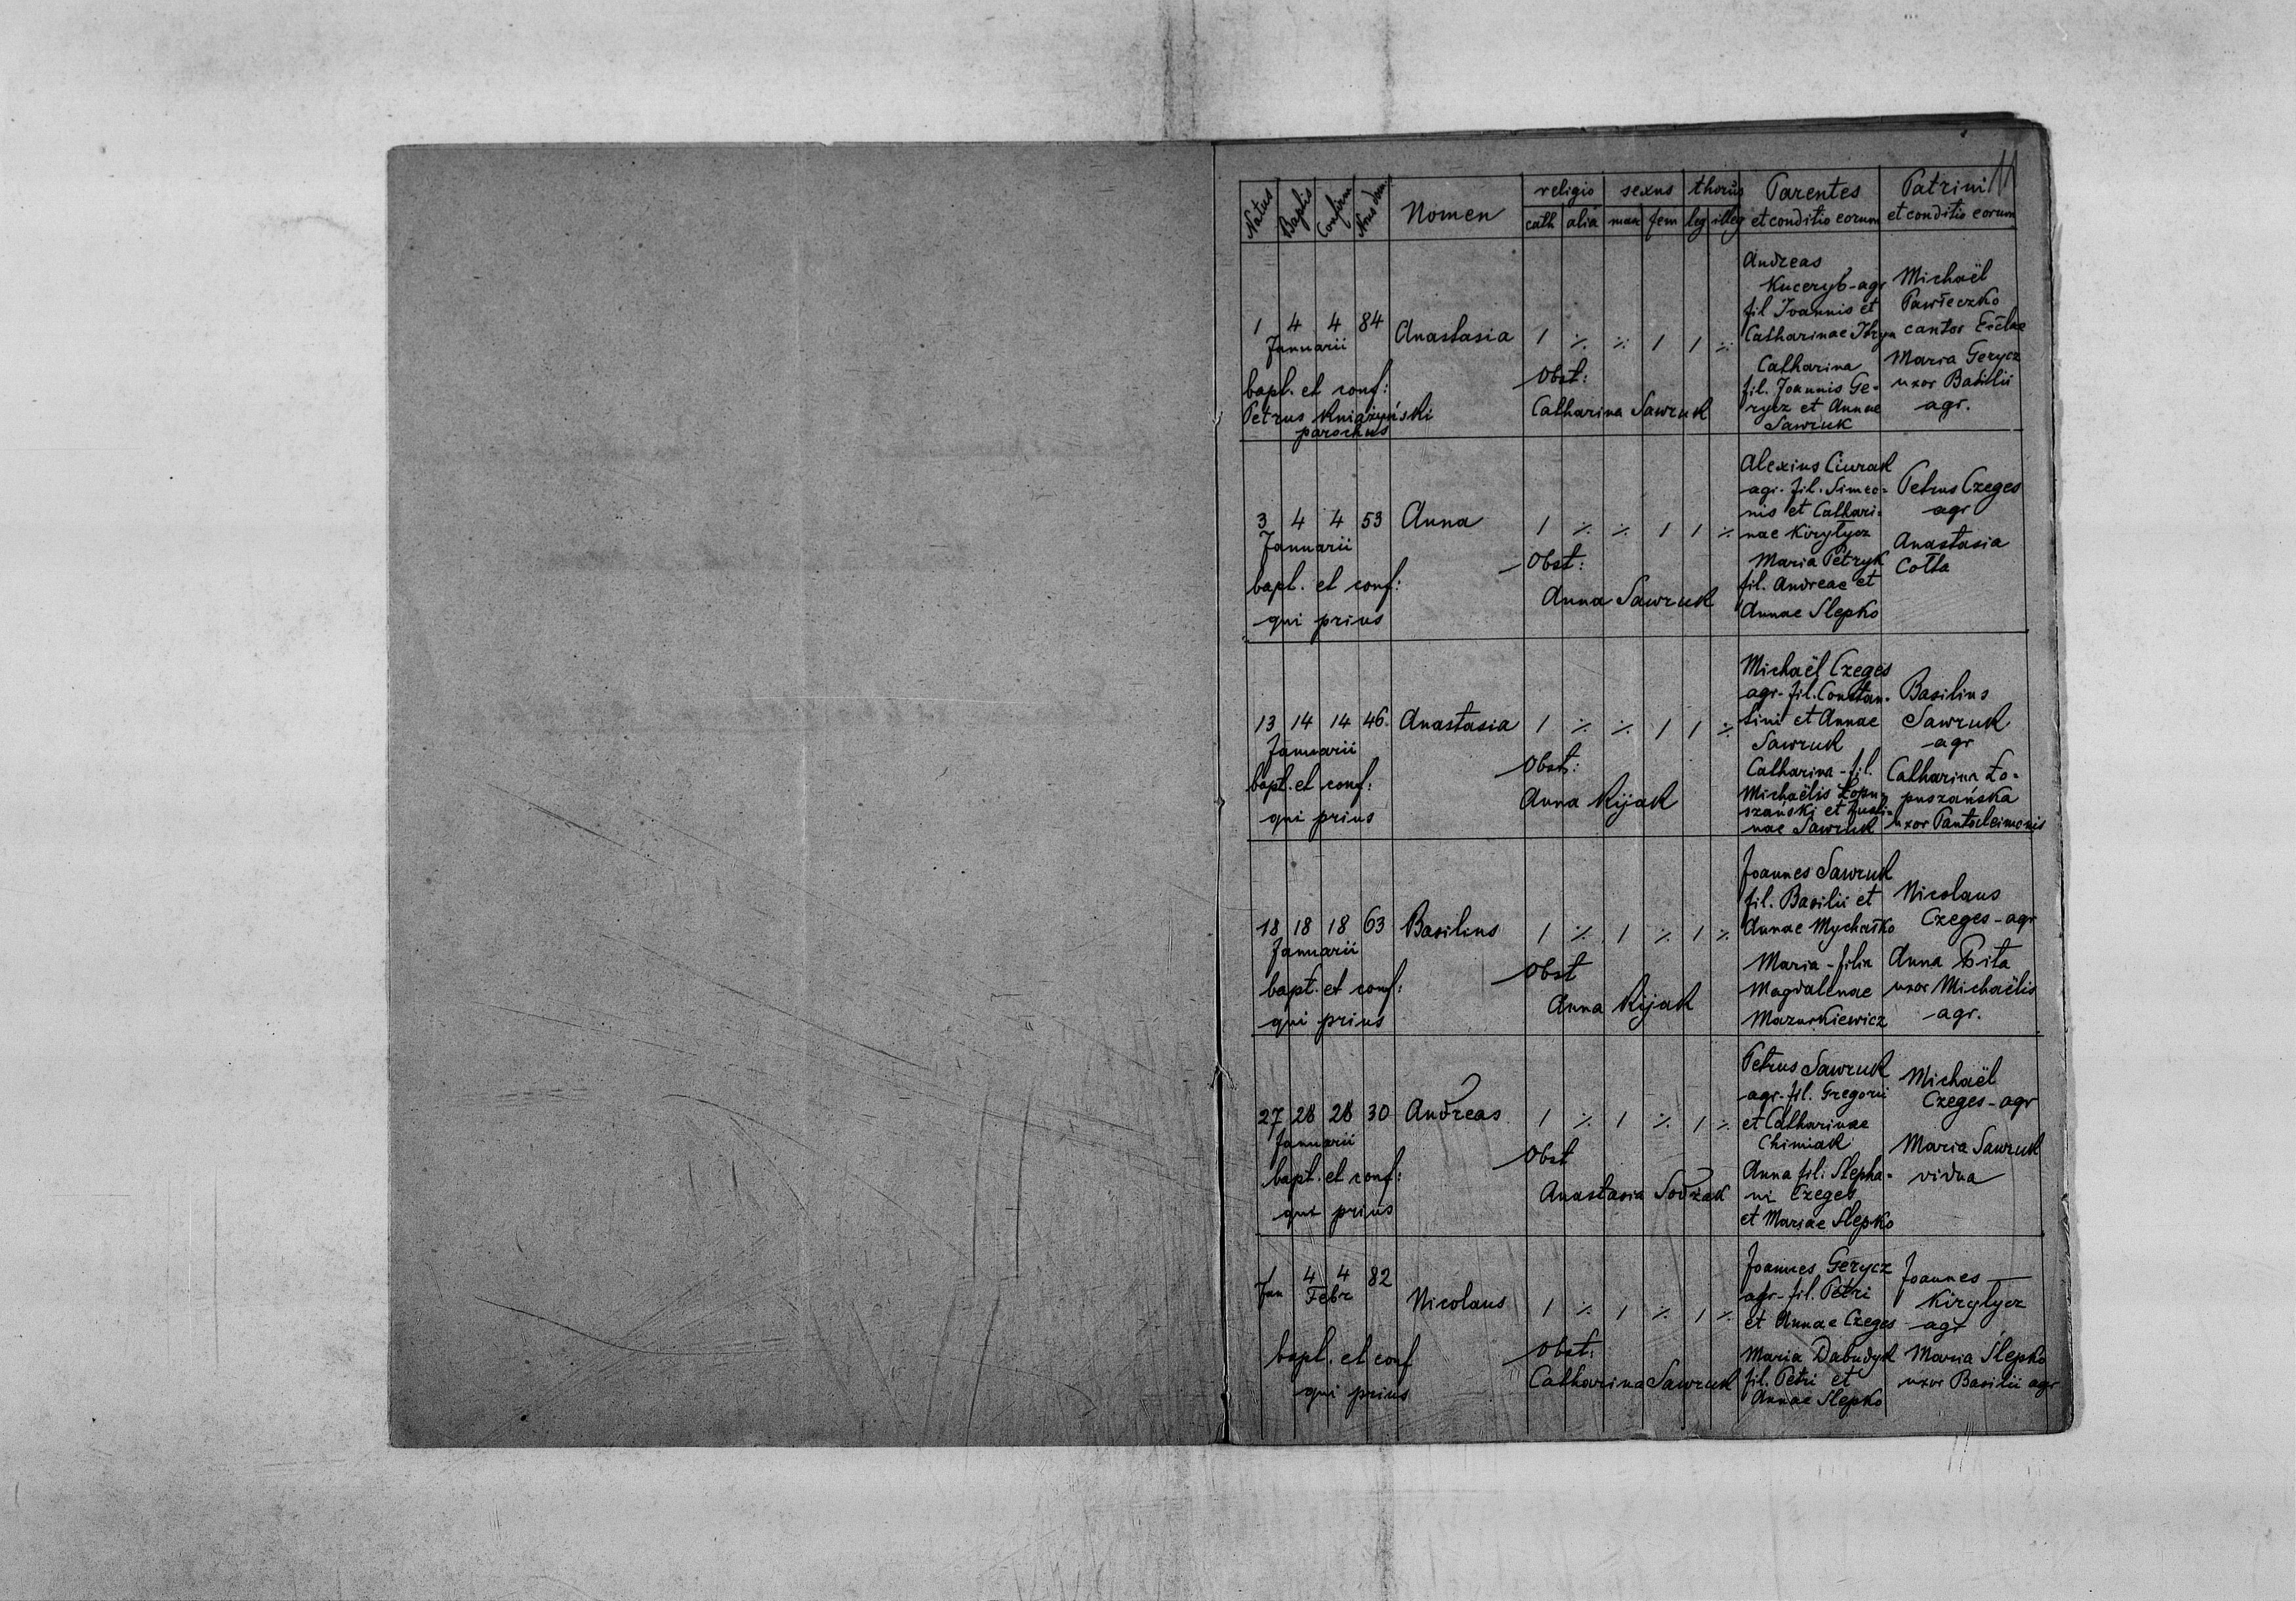 11
Natus Baptis Confirm Nrus dom. Nomen religio sexus thorus Parentes Patrini
cath alia mas fem leg illeg et conditio eorum et conditio eorum
1 4 4 84 Anastasia 1 ./. ./. 1 1 ./.
Januarii
bapt. et conf:
Petrus Kniażyński
parochus
Obst:
Catharina Sawruk
Andreas
Kuceryb - agr
fil Joannis et
Catharinae
Catharina
fil. Joannis Ge-
rycz et Annae
Sawruk
Michaël
Pawłeczko
cantor Eccłae
Maria Gerycz
uxor Basilii
agr.
3 4 4 53 Anna 1 ./. ./. 1 1 ./.
Januarii
bapt. et conf:
qui prius
Obst:
Anna Sawruk
Alexius Ciurak
agr. fil. Simeo-
nis et Cathari-
nae Kiryłycz
Maria Petryk
fil. Andreae et
Annae Slepko
Petrus Czeges
agr
Anastasia
Cotta
13 14 14 46 Anastasia 1 ./. ./. 1 1 ./.
Januarii
bapt. et conf:
qui prius
Obst:
Anna Kijak
Michaël Czeges
agr. fil. Constan-
tini et Annae
Sawruk
Catharina - fil.
Michaëlis Łopu-
szański et
nae Sawruk
Basilius
Sawruk
agr
Catharina Ło-
puszańska
uxor Panteleimonis
18 18 18 63 Basilius 1 ./. 1 ./. 1 ./.
Januarii
bapt. et conf:
qui prius
Obst
Anna Kijak
Joannes Sawruk
fil. Basilii et
Annae Mychałko
Maria - filia
Magdalenae
Mazurkiewicz
Nicolaus
Czeges - agr
Anna Pita
uxor Michaëlis
agr.
27 28 28 30 Andreas 1 ./. 1 ./. 1 ./.
Januarii
bapt. et conf:
qui prius
Obst
Anastasia Sodżak
Petrus Sawruk
agr. fil. Gregorii
et Catharinae
Chimiak
Anna fil. Stepha-
ni Czeges
et Mariae Slepko
Michaël
Czeges - agr
Maria Sawruk
vidua
1 4 4 82 Nicolaus 1 ./. 1 ./. 1 ./.
Jan Febr
bapt. et conf
qui prius
Obst:
Catharina Sawruk
Joannes Gerycz
agr. fil. Petri
et Annae Czeges
Maria Dabudyk
fil. Petri et
Annae Slepko
Joannes
Kiryłycz
agr
Maria Slepko
uxor Basilii agr